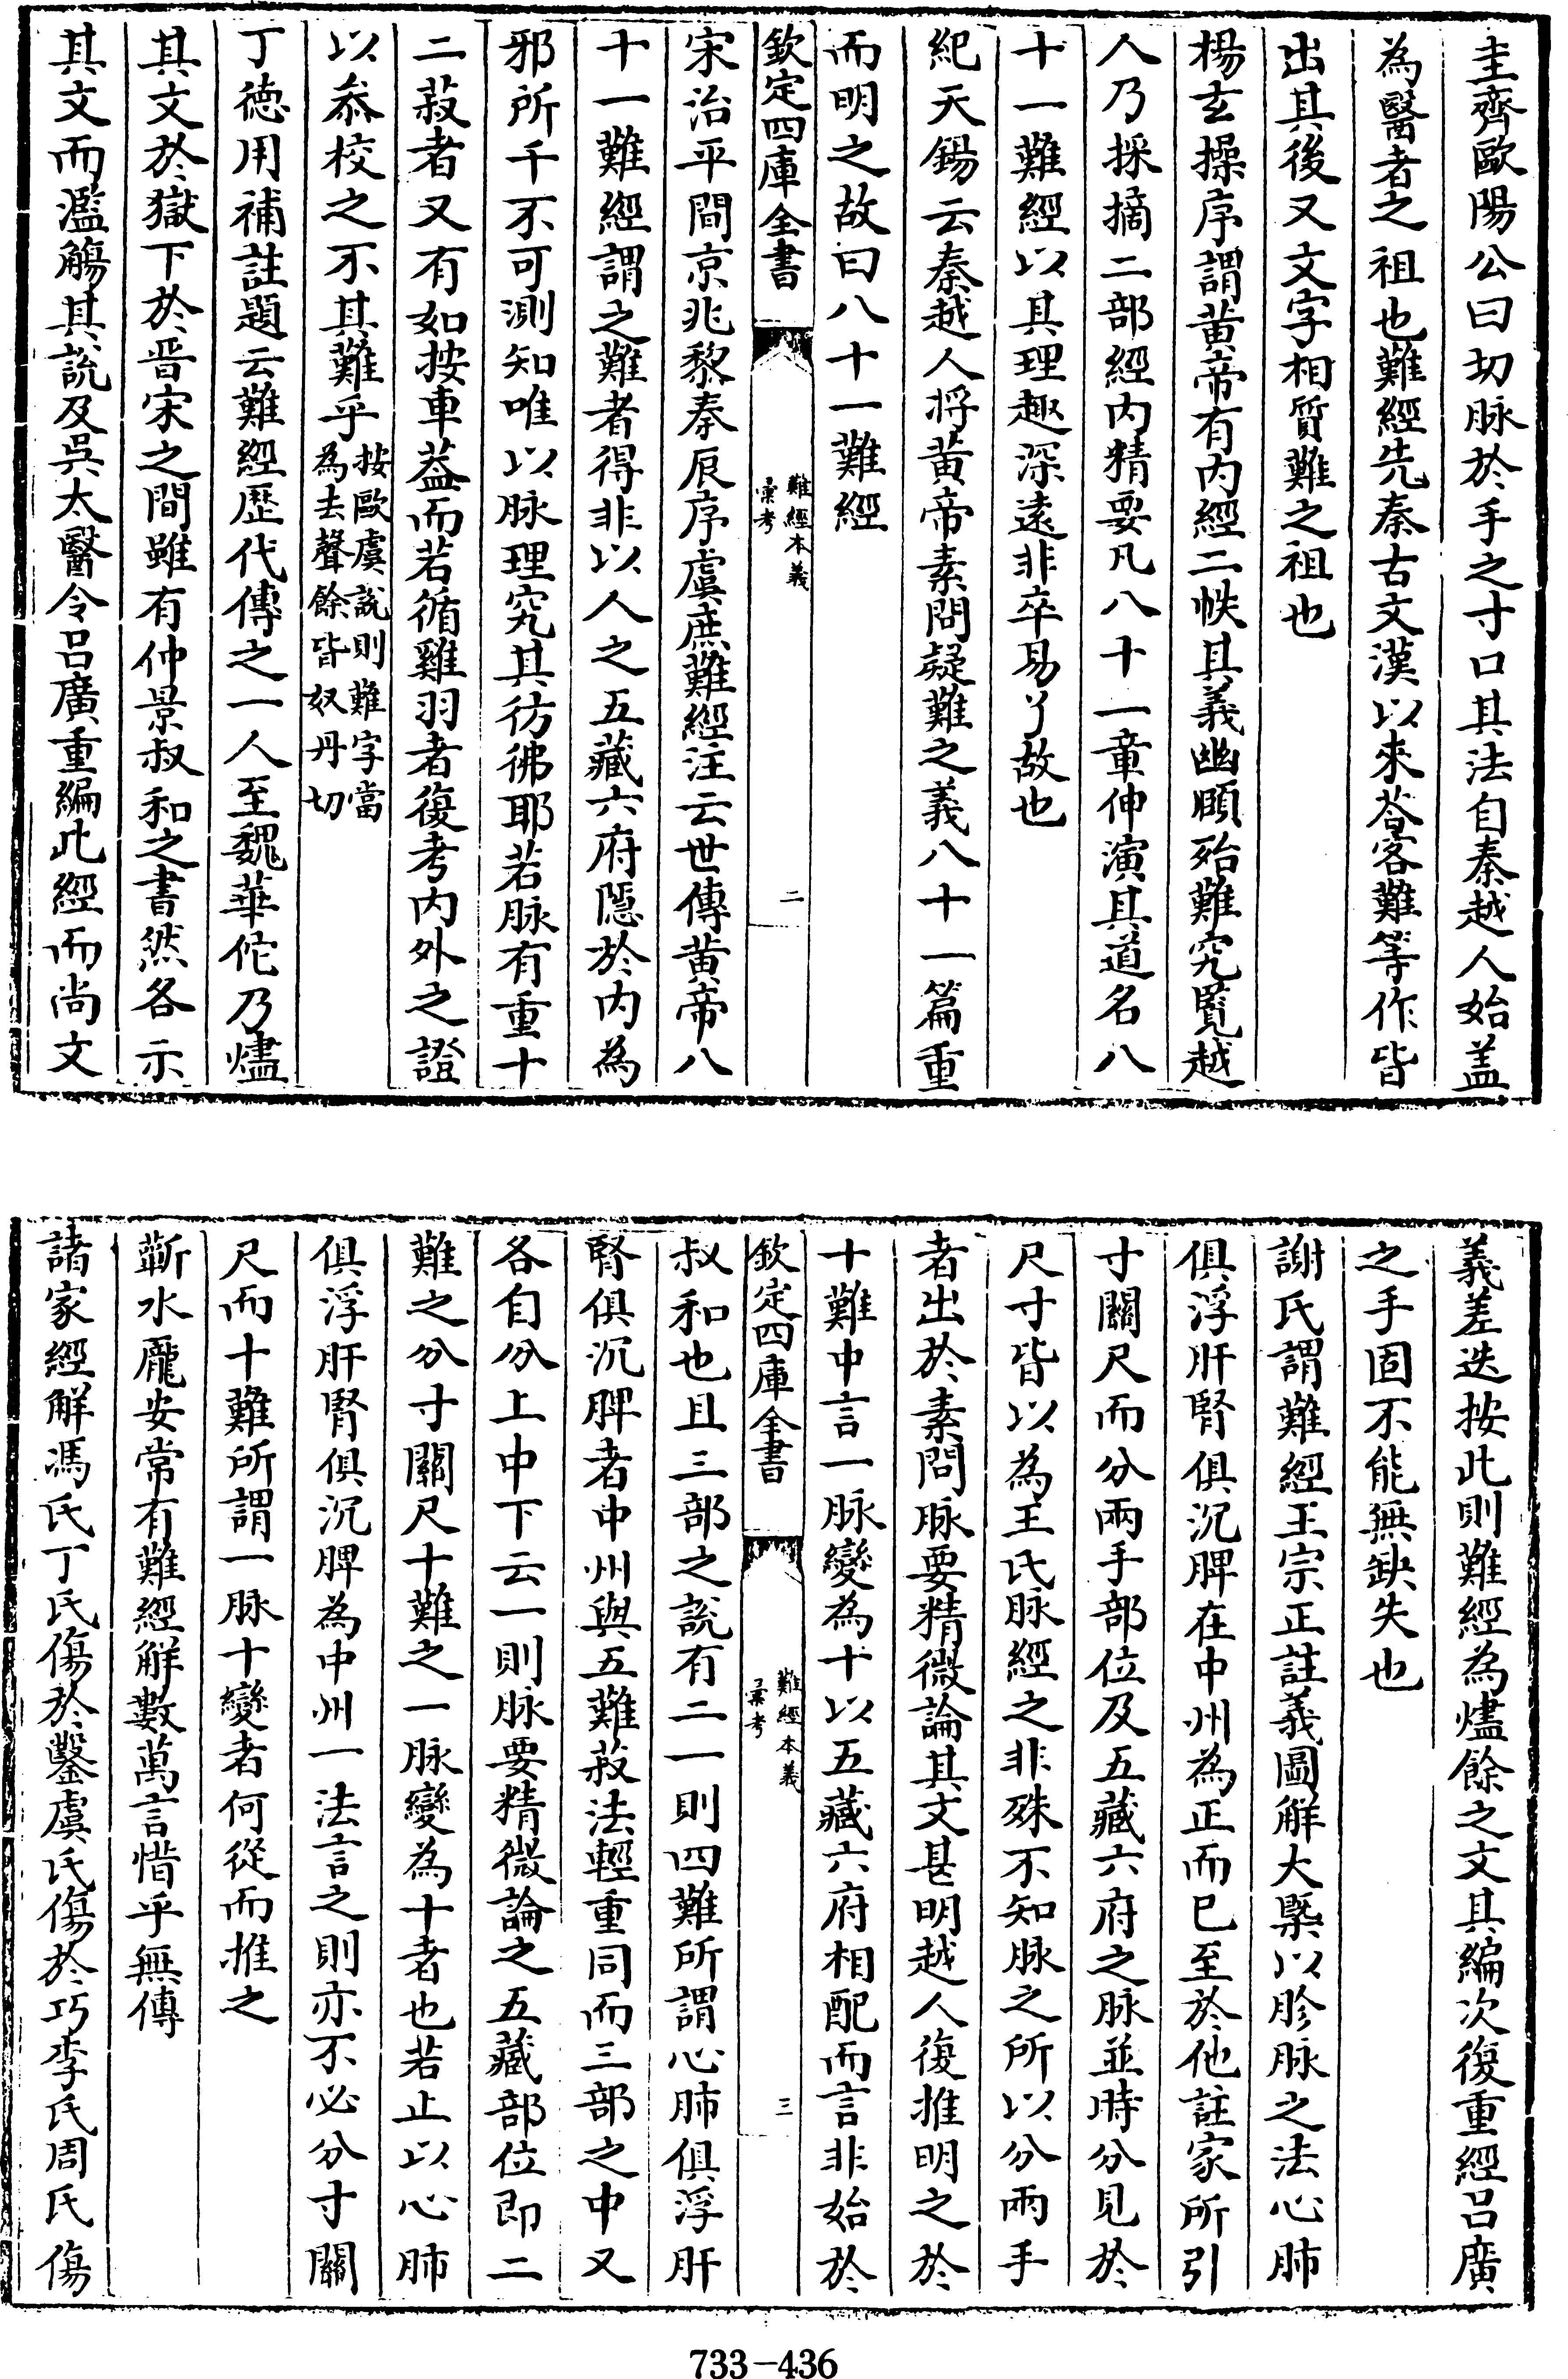 圭齊歐陽公曰切脉於手之寸口其法自秦越人始盖
為醫者之祖也難經先秦古文漢以來荅客難等作皆
出其後又文字相質難之祖也
楊玄操序謂黄帝有内經二帙其義幽頤殆難究覽越
人乃採摘二部經内精要凡八十一章伸演其道名八
十一難經以其理趣深遠非卒易了故也
紀天錫云秦越人將黄帝素問疑難之義八十一篇重
而明之故曰八十一難經
欽定四庫全書
難經本義
彚考
二
宋治平間京兆黎泰辰序虞庶難經注云世傳黄帝八
十一難經謂之難者得非以人之五藏六府隱於内為
邪所干不可測知唯以脉理究其彷彿耶若脉有重十
二菽者又有如按車葢而若循雞羽者復考内外之證
以叅校之不其難乎
按歐虞說則難字當
為去聲餘皆奴丹切
丁德用補註題云難經歷代傳之一人至魏華佗乃燼
其文於獄下於晋宋之間雖有仲景叔和之書然各示
其文而濫觴其說及吳太醫令吕廣重編此經而尚文
義差迭按此則難經為燼餘之文其編次復重經吕廣
之手固不能無缺失也
謝氏謂難經王宗正註義圖解大槩以胗脉之法心肺
俱浮肝腎俱沉脾在中州為正而已至於他註家所引
寸關尺而分兩手部位及五藏六府之脉並時分見於
尺寸皆以為王氏脉經之非殊不知脉之所以分兩手
者出於素問脉要精微論其文甚明越人復推明之於
十難中言一脉變為十以五藏六府相配而言非始於
欽定四庫全書
難經本義
彚考
三
叔和也且三部之說有二一則四難所謂心肺俱浮肝
腎俱沉脾者中州與五難菽法輕重同而三部之中又
各自分上中下云一則脉要精微論之五藏部位即二
難之分寸關尺十難之一脉變為十者也若止以心肺
俱浮肝腎俱沉脾為中州一法言之則亦不必分寸關
尺而十難所謂一脉十變者何從而推之
蘄水龎安常有難經解數萬言惜乎無傳
諸家經解馮氏丁氏傷於鑿虞氏傷於巧李氏周氏傷
733-436